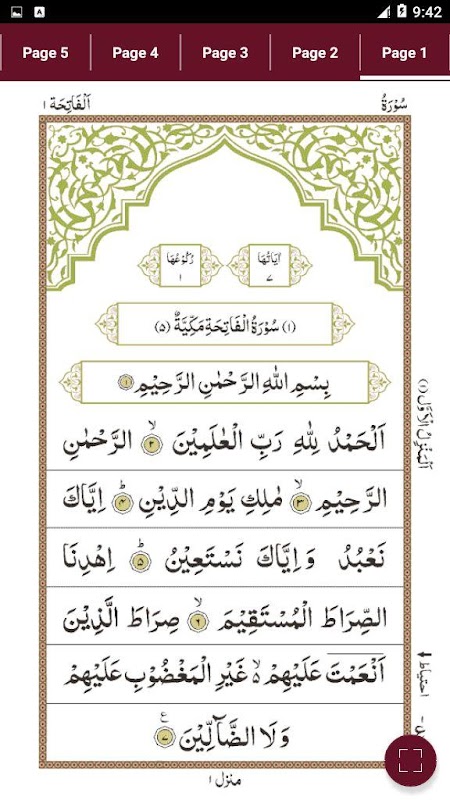 9:42
Page 5 Page 4 Page 3 Page 2 Page 1
سُوْرَةُ اَلْفَاتِحَة ١
اٰيَاتُهَا ٧ رُكُوْعُهَا ١
(١) سُوْرَةُ الْفَاتِحَةِ مَكِّيَّةٌ (٥)
بِسْمِ اللّٰهِ الرَّحْمٰنِ الرَّحِيْمِ ١
اَلْحَمْدُ لِلّٰهِ رَبِّ الْعٰلَمِيْنَ ۙ ٢ الرَّحْمٰنِ
الرَّحِيْمِ ۙ ٣ مٰلِكِ يَوْمِ الدِّيْنِ ؕ ٤ اِيَّاكَ
نَعْبُدُ وَاِيَّاكَ نَسْتَعِيْنُ ؕ ٥ اِهْدِنَا
الصِّرَاطَ الْمُسْتَقِيْمَ ۙ ٦ صِرَاطَ الَّذِيْنَ
اَنْعَمْتَ عَلَيْهِمْ ۙ۬ غَيْرِ الْمَغْضُوْبِ عَلَيْهِمْ
وَلَا الضَّآلِّيْنَ ٧ ع
اَلْمَنْزِلُ الْاَوَّل (١)
احتياط
منزل ١